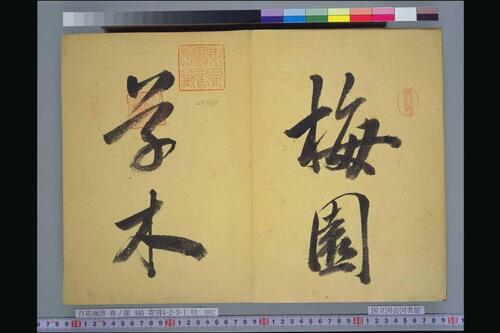 梅園
草木
東京
圖書
館藏
百花画譜 春ノ部 寄別4-2-3-1 01 002
国立国会図書館